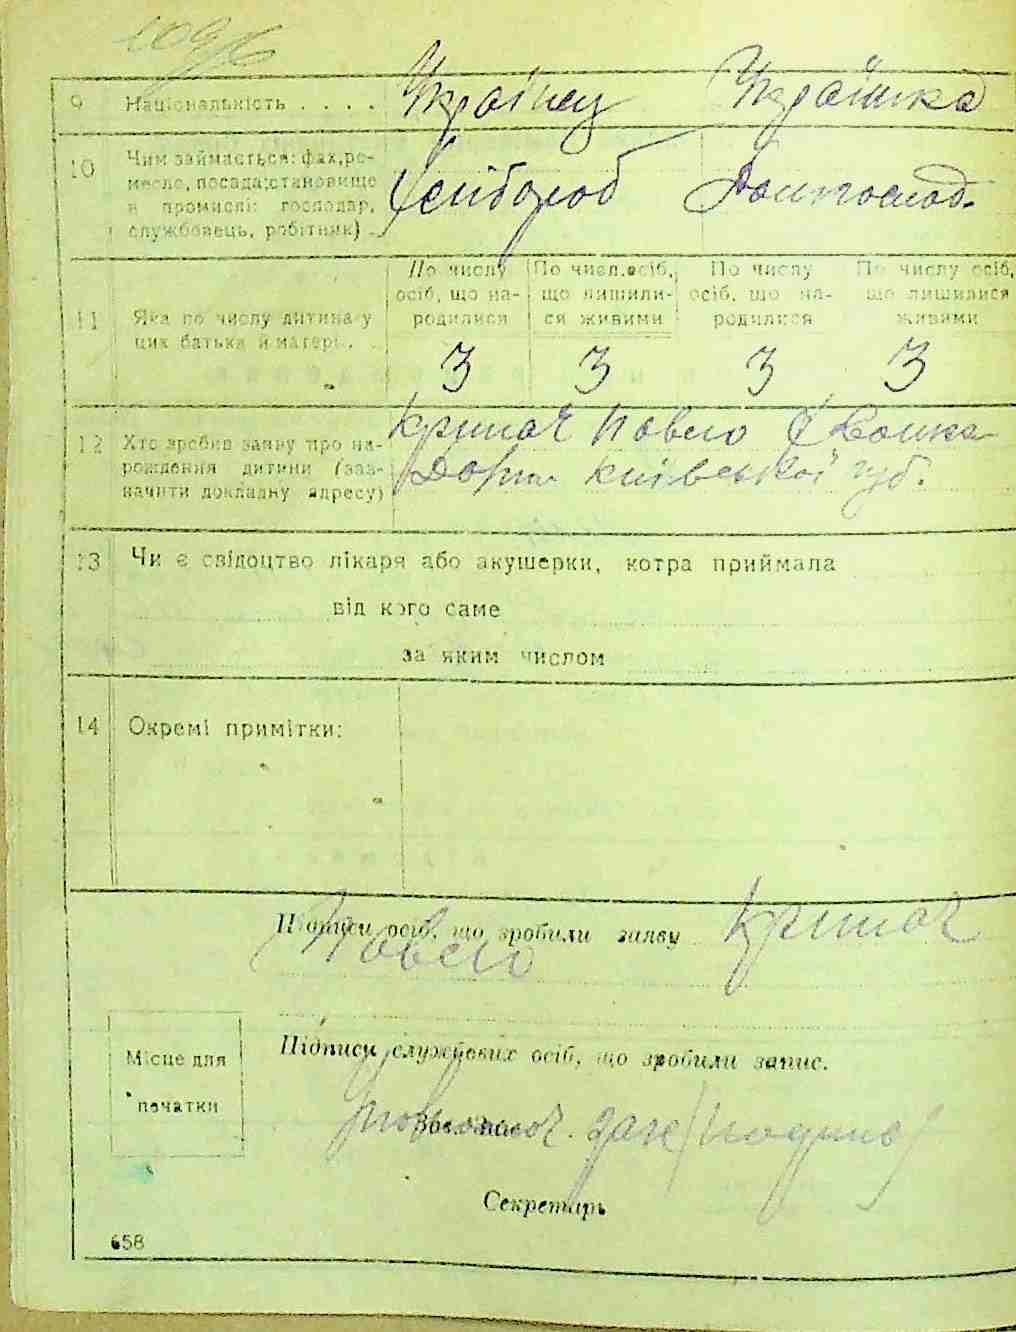 9 Національність . . . . Українец Українка
10 Чим займається: фах, ре-
месло, посада; становище
в промислі: господар,
службовець, робітник) . Хлібороб Домогоспод.
11 Яка по числу дитина у
цих батька й матері . .
По числу осіб, що на-родилися По числ. осіб, що лишили-ся живими По числу осіб, що на-родилися По числу осіб, що лишилися живими
3 3 3 3
12 Хто зробив заяву про на-
рождення дитини (заз-
начити докладну адресу)
Кримач Павло
Київської губ.
13 Чи є свідоцтво лікаря або акушерки, котра приймала
від кого саме
за яким числом
14 Окремі примітки:
Підписи осіб, що зробили заяву Кримач
Павло
Підписи службових осіб, що зробили запис.
Місце для
печатки
Секретарь
658